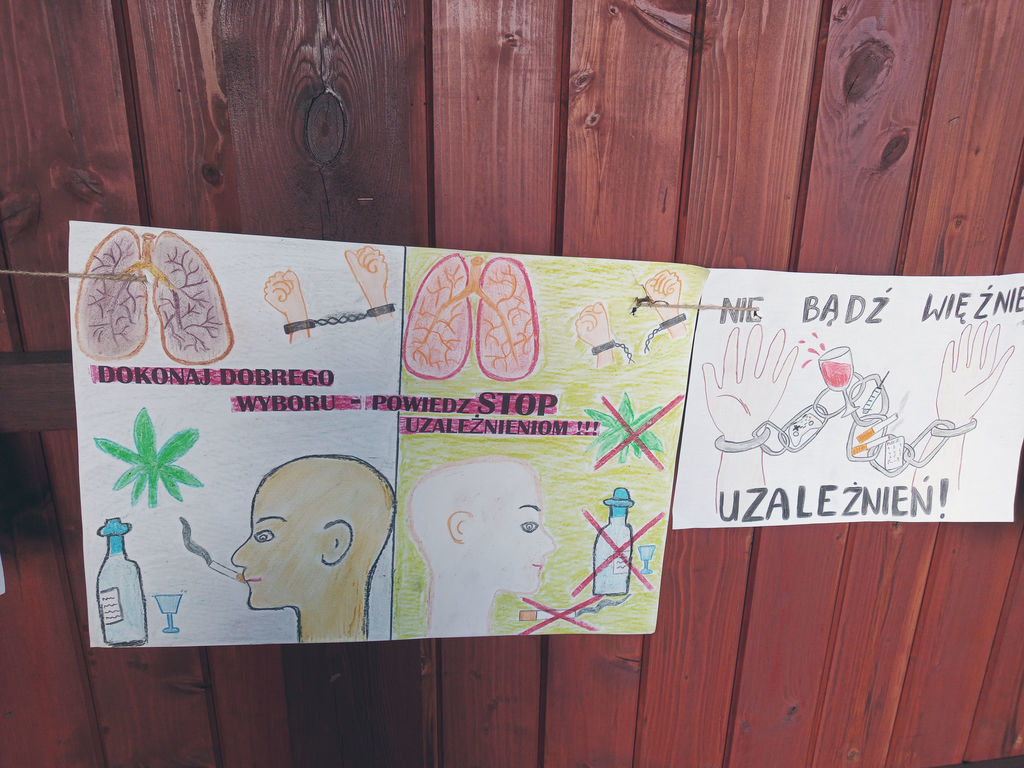 DOKONAJ DOBREGO
WYBORU - POWIEDZ STOP
UZALEŻNIENIOM !!!
NIE BĄDŹ WIĘŹNIE
UZALEŻNIEŃ!